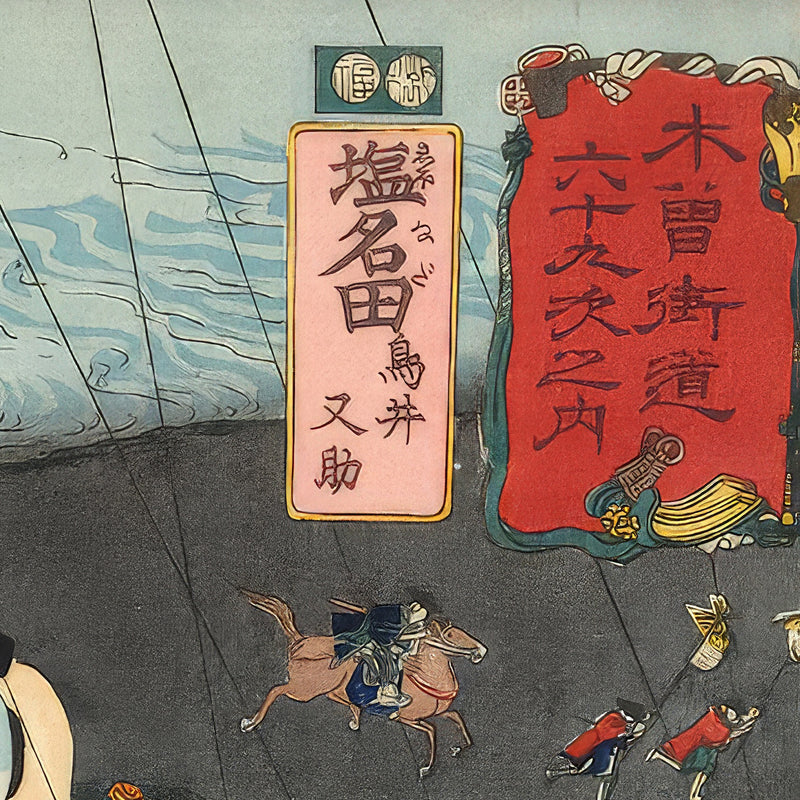 木曽街道
六十九次之内
塩名田
しほなだ
鳥井
又助